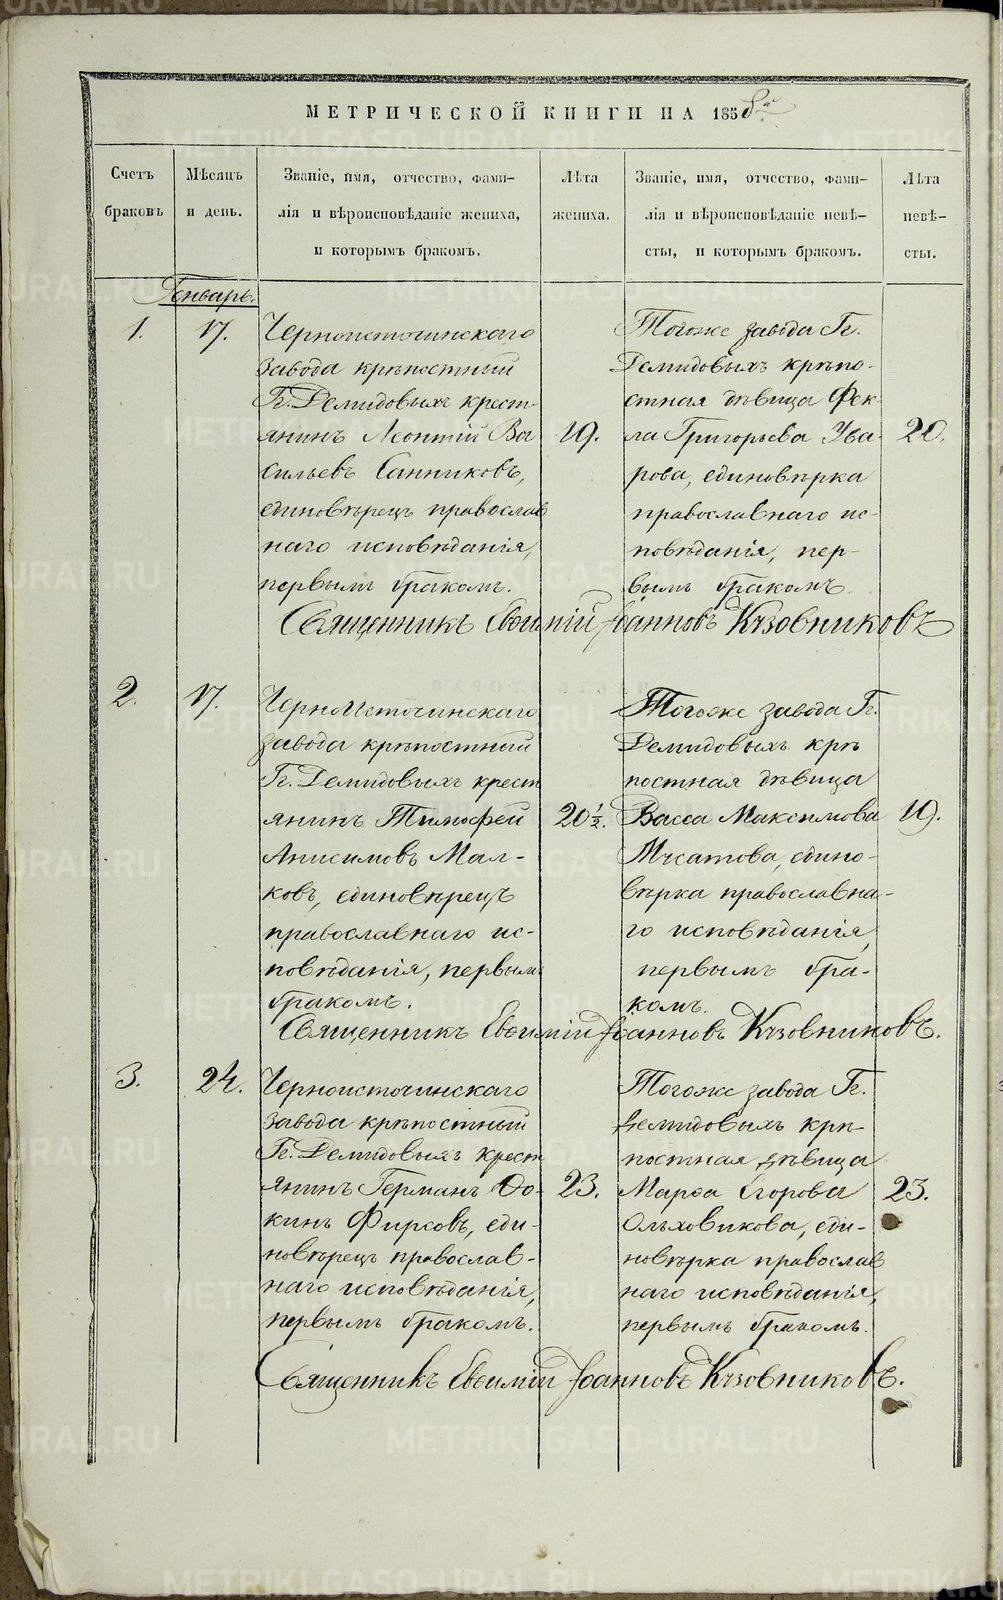 МЕТРИЧЕСКОЙ КНИГИ НА 1858й
Счетъ браковъ
Мѣсяцъ и день.
Званіе, имя, отчество, фами-
лія и вѣроисповѣданіе жениха,
и которымъ бракомъ.
Лѣта жениха.
Званіе, имя, отчество, фами-
лія и вѣроисповѣданіе невѣ-
сты, и которымъ бракомъ.
Лѣта невѣ-
сты.
Генварь.
1. 17.
Черноисточинскаго
завода крѣпостный
Гг. Демидовыхъ крест-
янинъ Леонтій Ва
сильевъ Санниковъ,
единовѣрецъ православ
наго исповѣданія,
первымъ бракомъ.
19.
Тогоже завода Гг.
Демидовыхъ крѣпо-
стная дѣвица Фек-
ла Григорьева Ува-
рова, единовѣрка
православнаго ис-
повѣданія, пер-
вымъ бракомъ
20.
Священникъ Евѳимій Іоанновъ Кузовниковъ
2. 17.
Черноисточинскаго
завода крѣпостный
Гг. Демидовыхъ крест
янинъ Тимофей
Анисимовъ Мал-
ковъ, единовѣрецъ
православнаго ис-
повѣданія, первымъ
бракомъ.
20 1/2.
Тогоже завода Гг.
Демидовыхъ крѣ
постная дѣвица
Васса Максимова
Мусатова, едино-
вѣрка православна-
го исповѣданія,
первымъ бра-
комъ.
19.
Священникъ Евѳимій Іоанновъ Кузовниковъ.
3. 24.
Черноисточинскаго
завода крѣпостный
Гг. Демидовыхъ крест
янинъ Германъ Ѳо-
кинъ Фирсовъ, еди-
новѣрецъ православ-
наго исповѣданія,
первымъ бракомъ.
23.
Тогоже завода Гг.
Демидовыхъ крѣ-
постная дѣвица
Марѳа Егорова
Ольховикова, еди-
новѣрка православ
наго исповѣданія,
первымъ бракомъ.
23.
Священникъ Евѳимій Іоанновъ Кузовниковъ.
METRIKI.GASO-URAL.RU